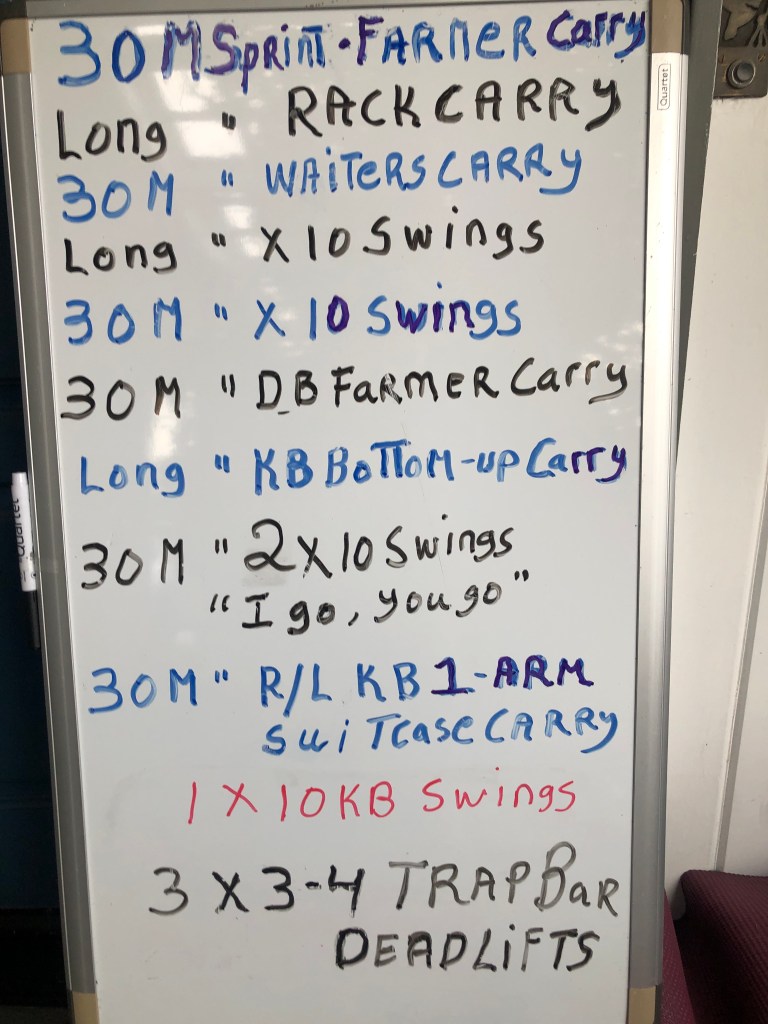 30 M Sprint · FARMER Carry
Long " RACK CARRY
30 M " WAITERS CARRY
Long " X 10 Swings
30 M " X 10 Swings
30 M " DB FARMER Carry
Long " KB BOTTOM-up Carry
30 M " 2 X 10 Swings
"I go, you go"
30 M " R/L KB 1-ARM
SuiTcase CARRY
1 X 10 KB Swings
3 X 3-4 TRAP BaR
DEADLiFTS
Quartet
Quartet